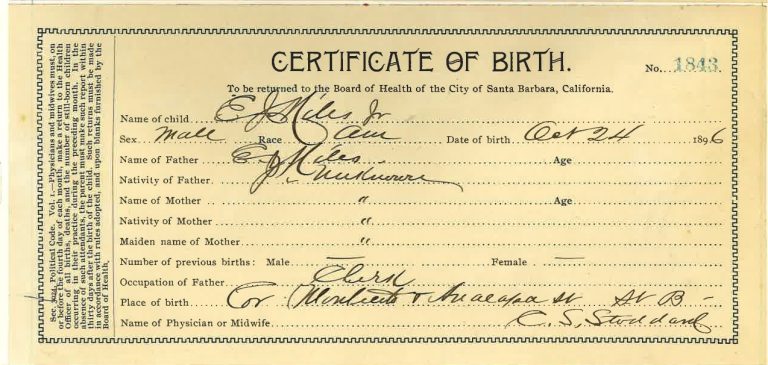 CERTIFICATE OF BIRTH.
No. 1843
To be returned to the Board of Health of the City of Santa Barbara, California.
Name of child E J Miles Jr
Sex Male Race Am Date of birth Oct 24 1896
Name of Father E J Miles Age
Nativity of Father Unknown
Name of Mother " Age
Nativity of Mother "
Maiden name of Mother "
Number of previous births: Male — Female —
Occupation of Father Clerk
Place of birth Cor Montecito & Anacapa St St B -
Name of Physician or Midwife C. S. Stoddard
Sec. 3024, Political Code, Vol. 1.—Physicians and midwives must, on
or before the fourth day of each month, make a return to the Health
Officer of all births, deaths, and the number of still-born children
occurring in their practice during the preceding month. In the
absence of such attendants, the parent must make such report within
thirty days after the birth of the child. Such returns must be made
in accordance with rules adopted, and upon blanks furnished by the
Board of Health.